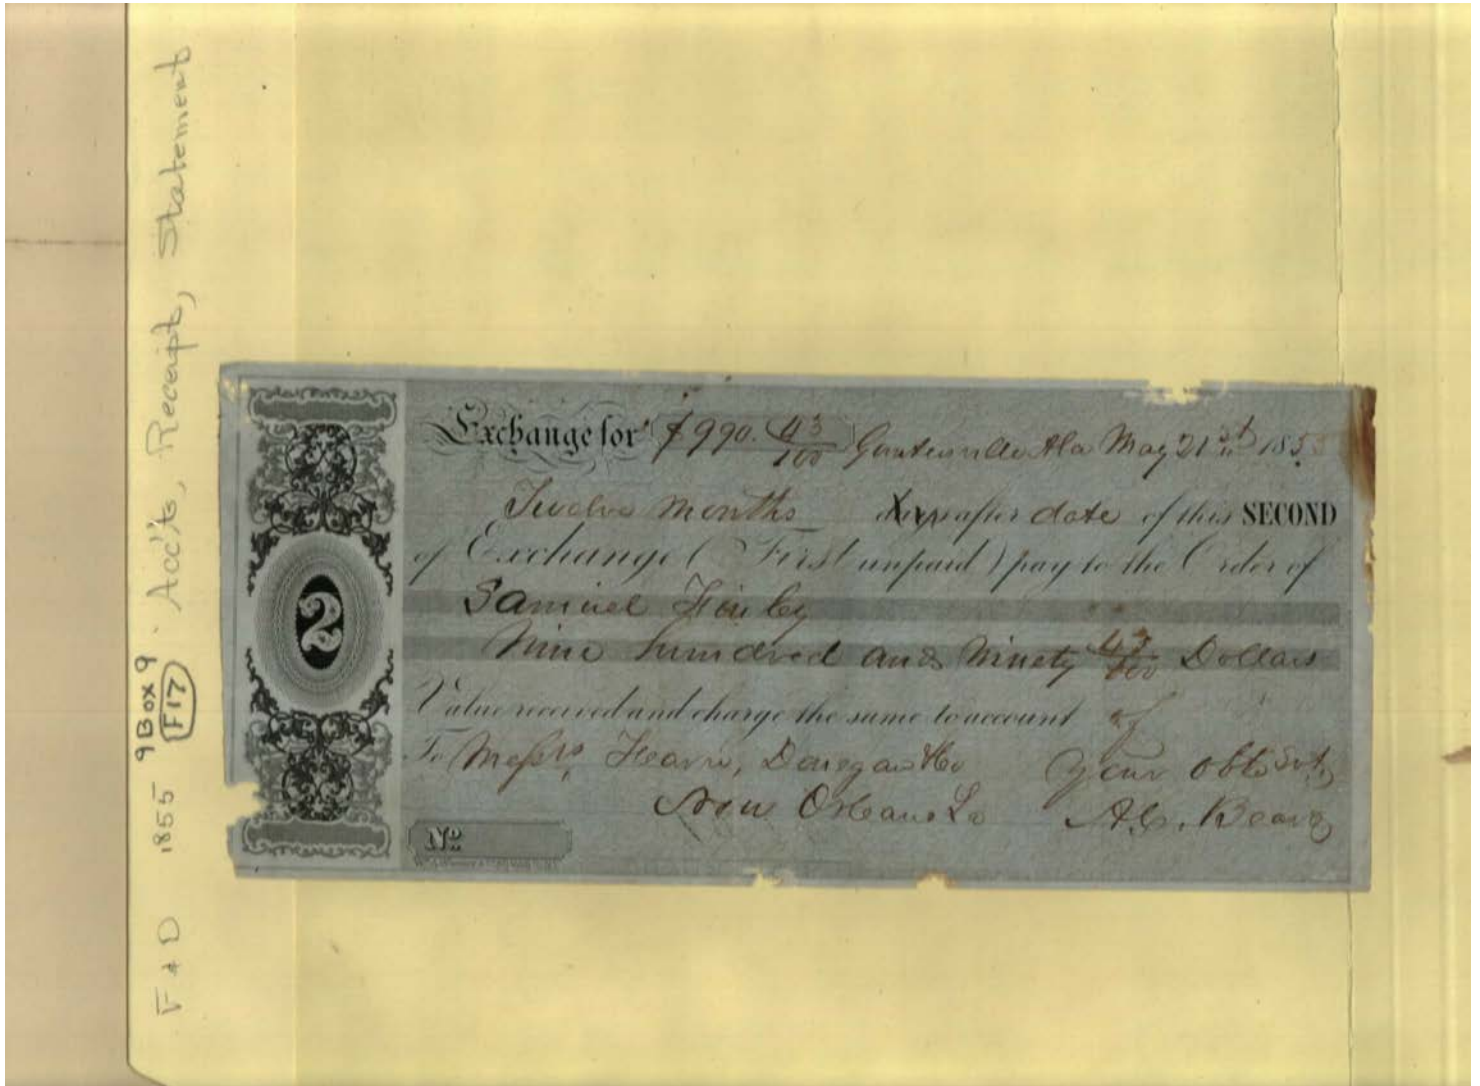 F & D 1855 9 Box 9 F17 Acc'ts, Receipt, Statement
Exchange for $990. 43/100 Guntersville Ala May 21st 1855
Twelve Months days after date of this SECOND
of Exchange (First unpaid) pay to the Order of
Samuel Finley
Nine hundred and Ninety 43/100 Dollars
Value received and charge the same to account of
To Messrs, Fearn, Donegan & Co your obt. Svt,
New Orleans La A.C. Beard
No.